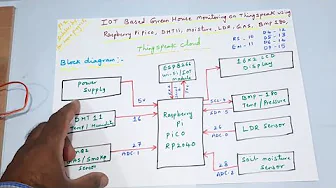 IOT Based Green House Monitoring on Thingspeak using
Raspberry Pi Pico, DHT11, Moisture, LDR, GAS, BMP180,
Thingspeak cloud
RS - 10
En - 11
D4 - 12
D5 - 13
D6 - 14
D7 - 15
Block diagram:
ESP8266
Wi-Fi/IOT
module
16x2 LCD
Display
Power
Supply
5v
BMP-180
Temp/Pressure
DHT 11
Temp/Humidit
16
Raspberry
Pi
PICO
RP2040
LDR Sensor
26
ADC-0
GAS/Smoke
Sensor
27
ADC-1
28
ADC-2
Soil moisture
Sensor